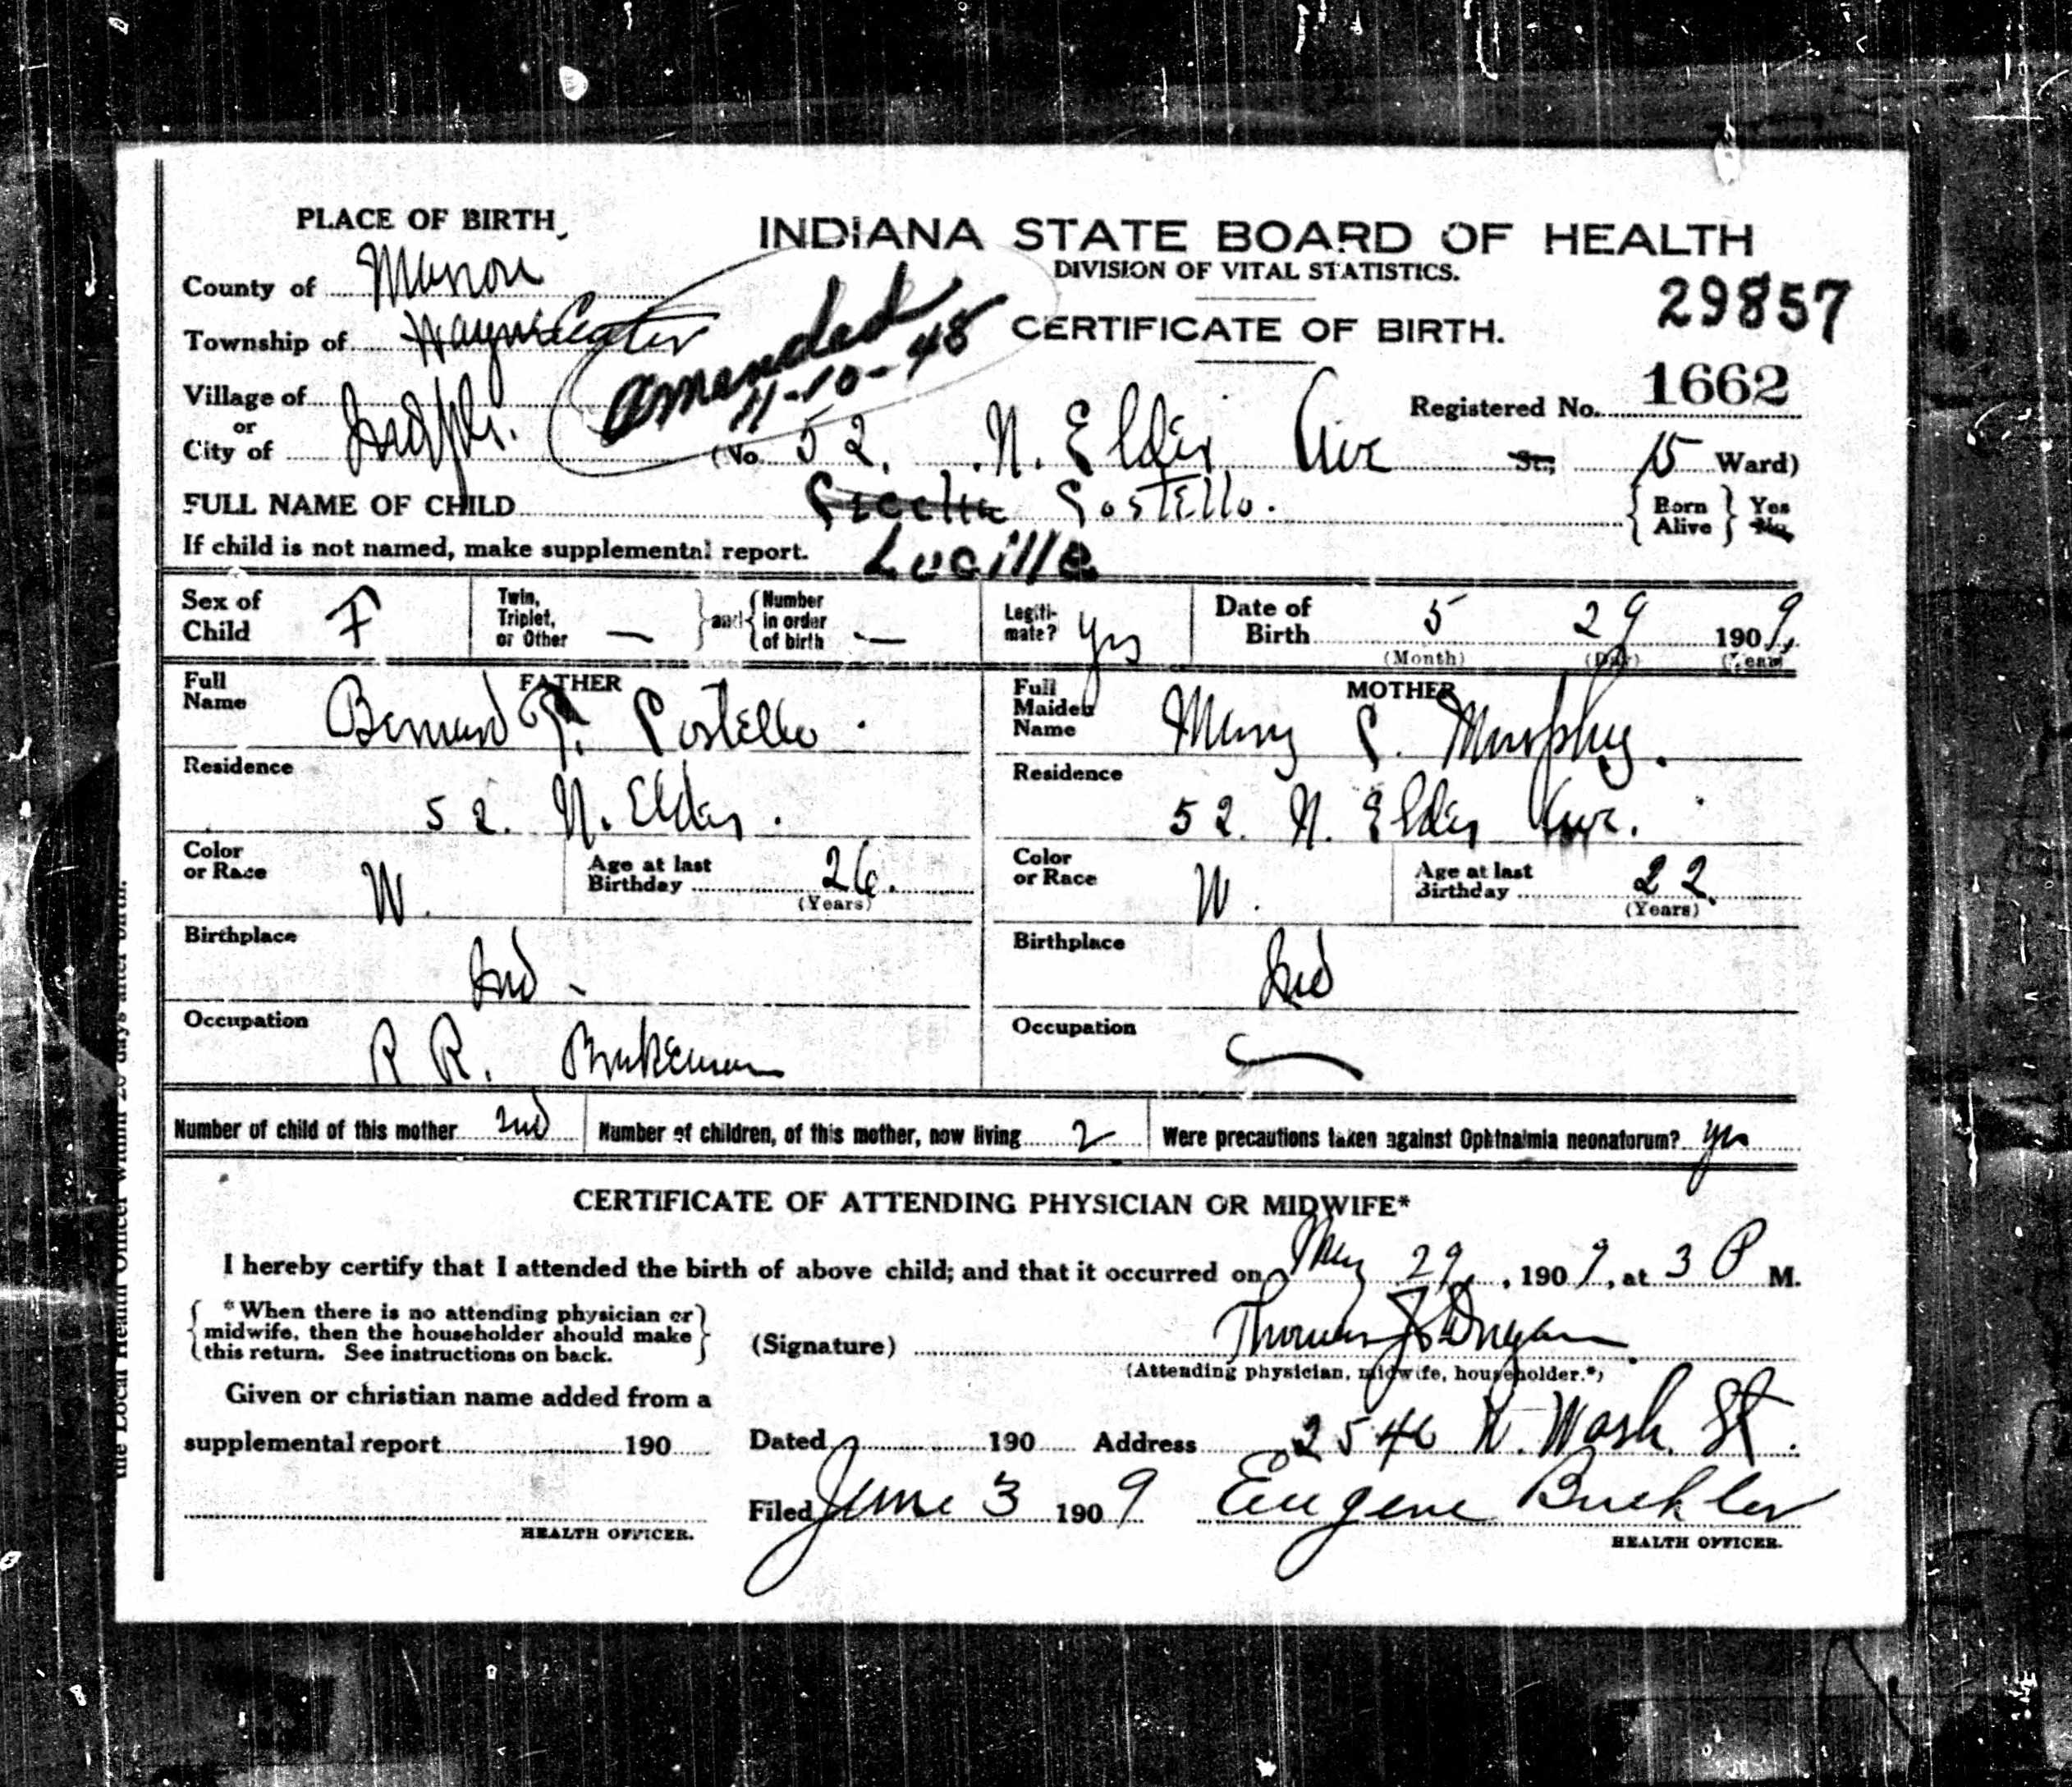 PLACE OF BIRTH
INDIANA STATE BOARD OF HEALTH
DIVISION OF VITAL STATISTICS.
CERTIFICATE OF BIRTH.
29857
County of Marion
Township of Wayne Center
amended
11-10-48
Village of
or
City of Indpls.
Registered No. 1662
(No. 52. N. Elder Ave St., 15 Ward)
FULL NAME OF CHILD Costello.
Born Alive } Yes No
If child is not named, make supplemental report. Lucille
Sex of Child F
Twin, Triplet, or Other — } and { Number in order of birth —
Legiti-mate? Yes
Date of Birth 5 29 1909,
(Month) (Day) (Year)
FATHER
Full Name Bernard Costello.
Residence
52. N. Elder.
Color or Race W.
Age at last Birthday 26.
(Years)
Birthplace
Ind -
Occupation
R R. Brakeman
MOTHER
Full Maiden Name Mary C. Murphy.
Residence
52. N. Elder Ave.
Color or Race W.
Age at last Birthday 22.
(Years)
Birthplace
Ind
Occupation
Number of child of this mother 2nd
Number of children, of this mother, now living 2
Were precautions taken against Ophthalmia neonatorum? yes
CERTIFICATE OF ATTENDING PHYSICIAN OR MIDWIFE*
I hereby certify that I attended the birth of above child; and that it occurred on May 29, 1909, at 3 P M.
{ *When there is no attending physician or
midwife, then the householder should make
this return. See instructions on back. }
(Signature) Thomas Dugan
(Attending physician, midwife, householder.*)
Given or christian name added from a
supplemental report 190
Dated 190 Address 2540 W. Wash. St.
Filed June 3 1909 Eugene Buehler
HEALTH OFFICER.
HEALTH OFFICER.
the Local Health Officer within 20 days after birth.